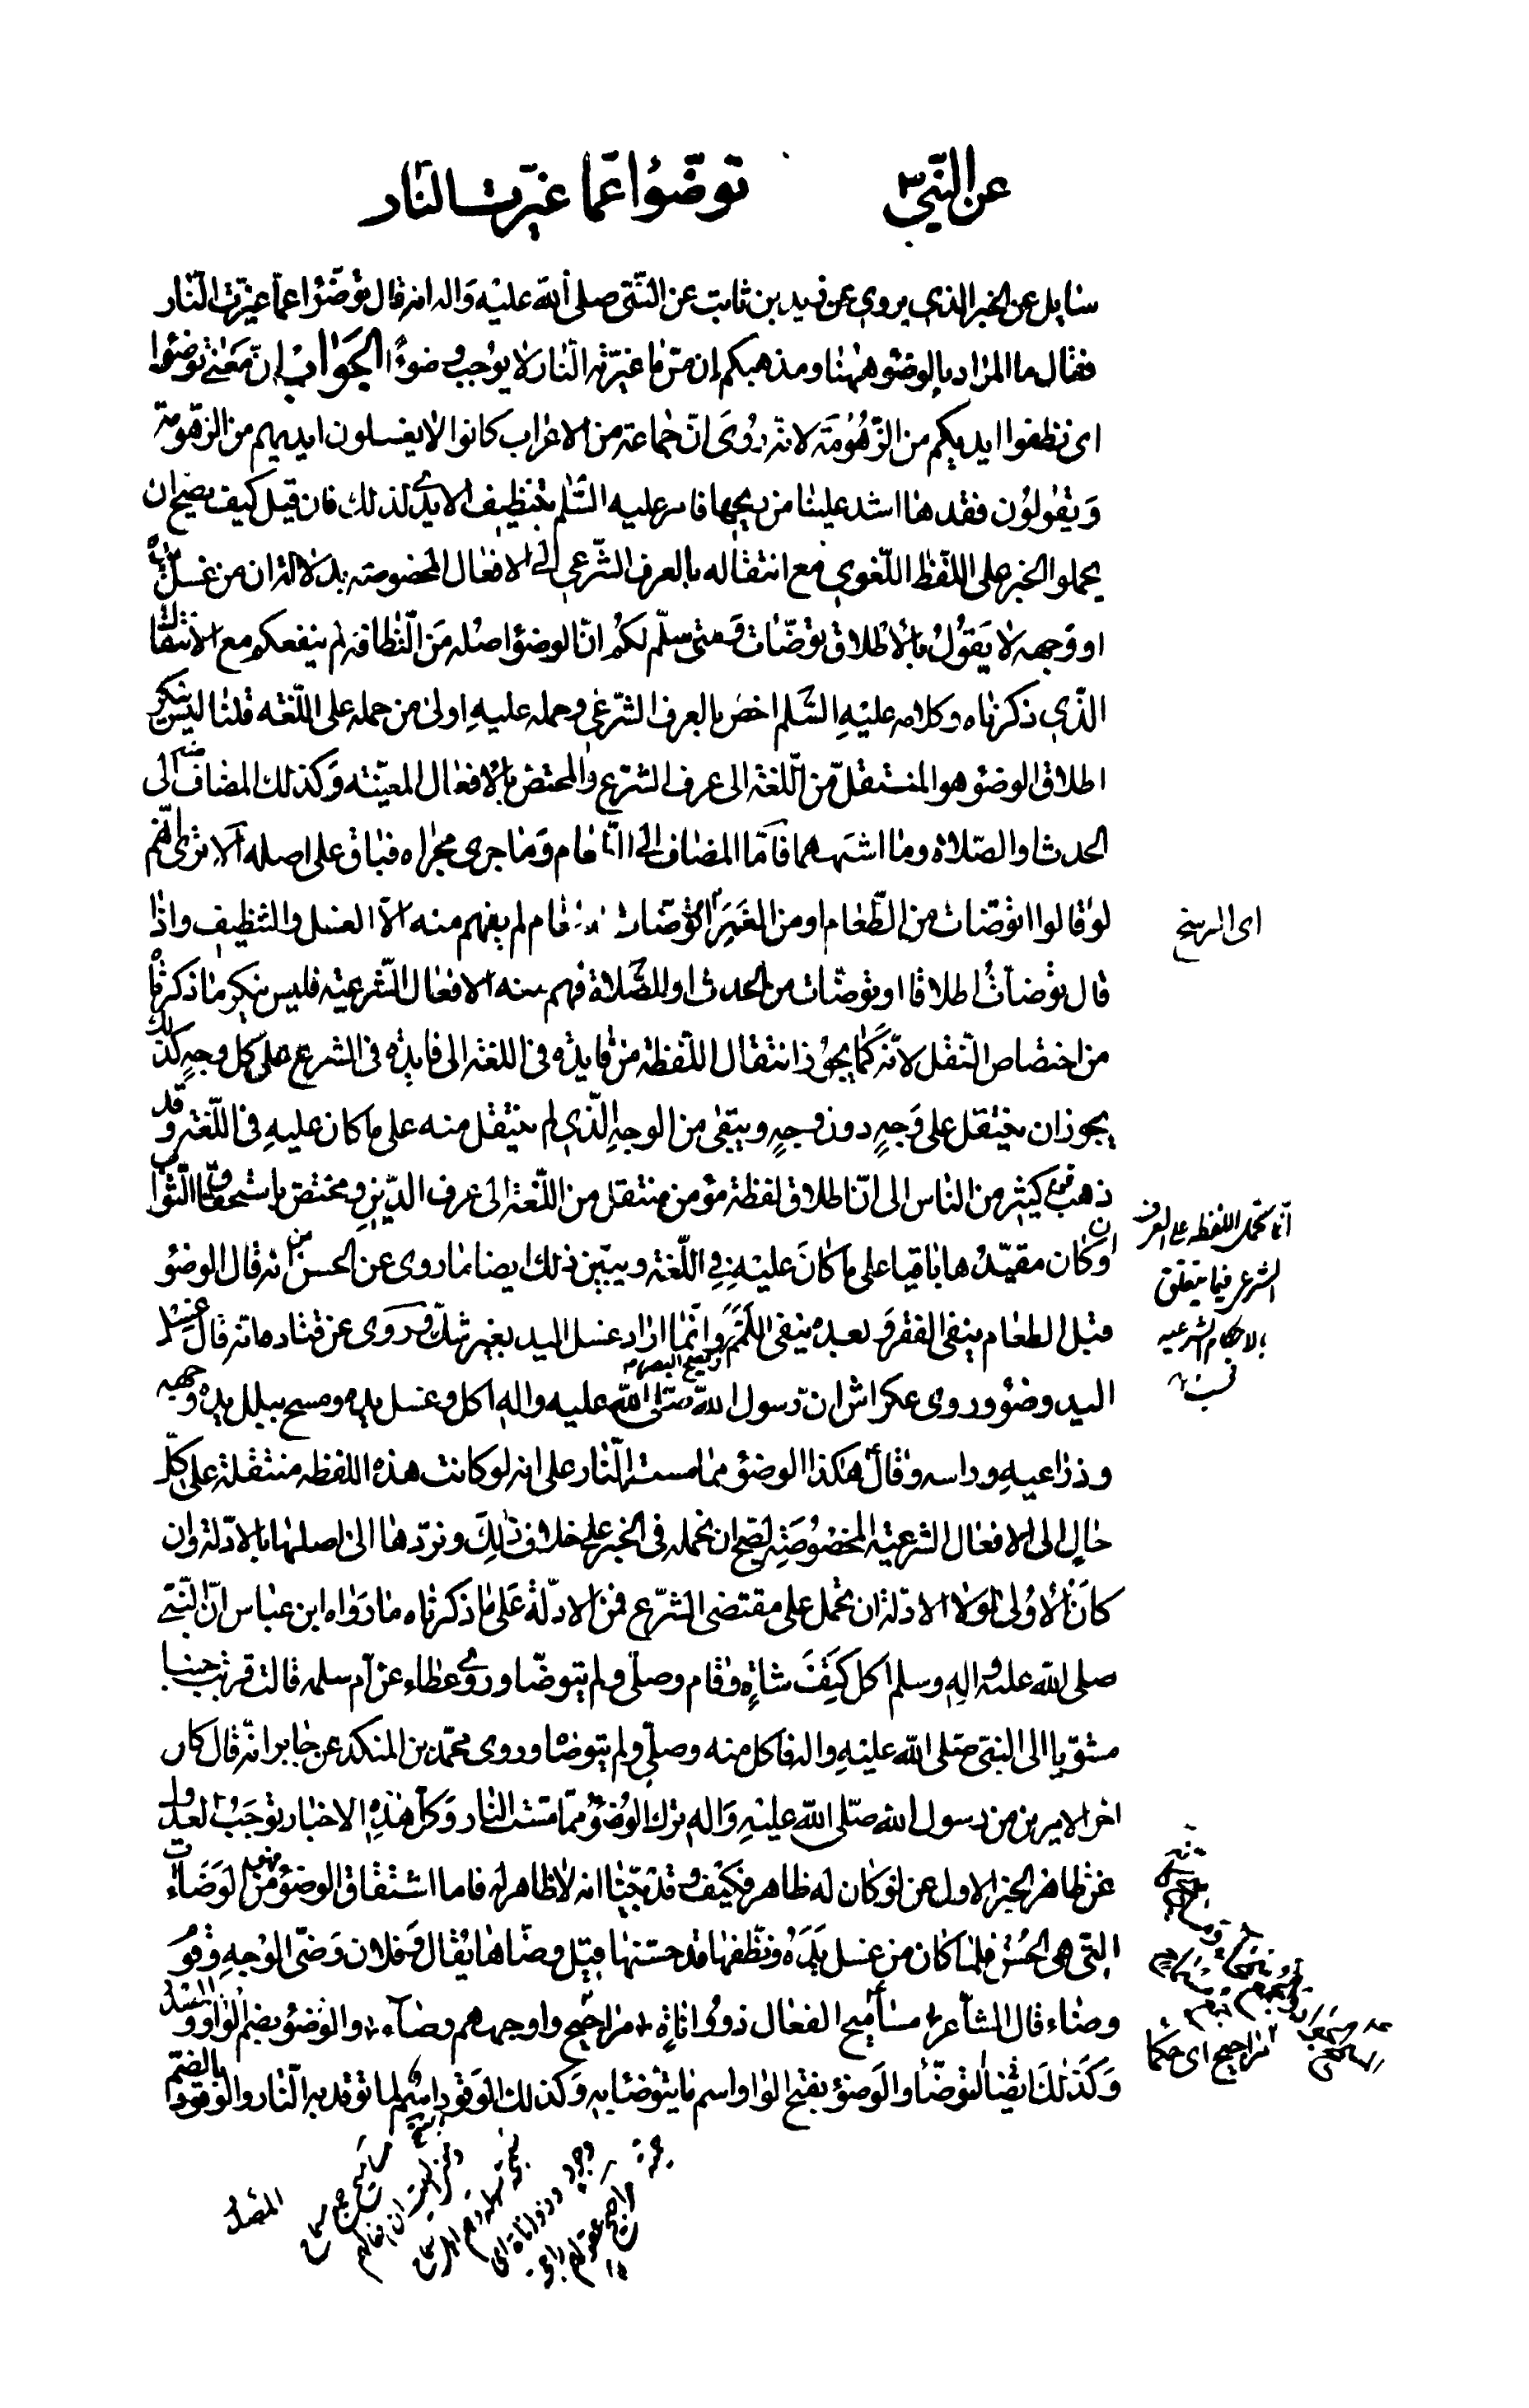 عن النبي ص توضّؤا عمّا غيّرت النار
سايل عن الخبر الذي يروي عن زيد بن ثابت عن النّبيّ صلى الله عليه واله انه قال توضّؤا عمّا غيّرت النّار
فقال ما المراد بالوضؤ ههنا ومذهبكم ان مسّ ما غيّرته النار لا يوجب وضوءً الجواب انّ معنى توضؤا
اى نظفوا ايديكم من الزّهُومَة لانه رُوىَ انّ جماعة من الاعراب كانوا لا يغسلون ايديهم من الزّهومة
وَيقولون فقدها اشد علينا من ريحها فامر عليه السّلم بتنظيف الايدى لذلك فان قيل كيف يصح ان
يحملوا الخبر على اللّفظ اللّغوي مع انتقاله بالعرف الشّرعي الى الافعال المخصوصة بدلالة ان من غسل يده
او وَجهه لا يَقُولُ بالاطلاق توضّات وَمتى سلّم لكم انّ الوضؤ اصله مَن النّظافة لم ينفعكم مع الانتقال
الّذي ذكرناه وكلامه عليْهِ السّلم اخصَ بالعرف الشّرعي وحمله عليهِ اولىٰ من حمله على اللّغة قلنا ليس ينكر
اطلاق الوضؤ هو المنتقل من اللّغة الى عرف الشّرع والمختص بالافعال المعيّنة وَكذلك المضاف منه الى
الحدث او الصّلاة وما اشبههما فَامّا المضاف الى الطعام وَما جرى مجراه فباق على اصله الا ترى انّهم
لو قالوا توضّات من الطّعام او من الغَمَرِ او توضّات للطعام لم يفهم منه الّا الغسل والتنظيف واذا
قال توضأتُ اطلاقا او توضّات من الحدث او للصّلاة فهم منه الافعال الشّرعية فليس ينكر ما ذكرناه
من اختصاص النّقل لانّه كَما يجوز انتقال اللّفظة من فايدة في اللغة الى فايدة فى الشرع على كل وجهٍ كذلك
يجوز ان ينتقل على وَجهٍ دون وجهٍ ويبقى من الوجه الّذي لم ينتقل منه على ما كان عليهِ فى اللّغة وقد
ذهب قوم كثير من الناس الى انّ اطلاق لفظة مؤمن منتقل من اللّغة الى عرف الدّين ومختص باستحقاق الثّواب
وان كان مقيّدها باقيا على ما كانَ عليْهِ في اللّغة ويبيّن ذلك ايضا ما روى عن الحسن انه قال الوضؤ
قبل الطعام ينفى الفقر وَبعده ينفى اللّمَم وَانّما اراد غسل اليد بغير شكّ وَروى عن قتادة انه قال غسل
اليد وضؤ وروى عكراش ان رسول الله صلى الله عليه واله اكل وغسل يده ومسح ببلل يده وجهه
وذراعيه وراسه وقال هٰكذا الوضؤ مما مست النّار على انه لو كانت هذه اللفظه منتقلة على كلّ
حالٍ الى الافعال الشرعيّة المخصُوصَة لصح ان نحمله فى الخبر على خلاف ذٰلِكَ ونردّها الى اصلها بالادّلة وان
كانَ الاوْلى لولا الادلّة ان تحمل على مقتضى الشّرع فمن الادلّة عَلى ما ذكرناه ما رَواه ابن عباس انّ النّبى
صلى الله عليه واله وسلم اكل كَتِفَ شاةٍ وقام وصلّى ولم يتوضّا وروى عطاء عن ام سلمه قالت قربت جنبا
مشويّا الى النبى صلى الله عليْهِ واله فاكل منه وصلّى ولم يتوضا وروى محمّد بن المنكدر عن جابر انّه قال كان
اخر الامرين من رسول الله صلى الله عليْهِ وَاله ترك الوُضؤُ ممّا مسّت النار وَكل هٰذِهِ الاخبار توجَبُ العدول
عن ظاهر الخبر الاول عن لو كان له ظاهر فكيف وقد بيّنا انه لا ظاهر له فاما اشتقاق الوضؤ فهو من الوَضَاءَة
التى هى الحُسْن فلمّا كان من غسل يَدَهُ ونظّفها قد حسّنها قيل وضّاها يُقال فلان وَضىّ الوجهِ وقوم
وضاء قال الشاعر مساميح الفعال ذوو اناةٍ مراجيح واوجههم وضاء والوضؤ بضم الواو المصدر
وَكَذلكَ ايضا التوضّأ والوَضؤ بفتح الواو اسم ما يتوضّا به وَكذلك الوَقود اسم لما توقد به النّار والوقود بالضم
المصدر
اى الريح
انما تحمل اللفظه على العرف
الشرعى فيما يتعلق
بالاحكام الشرعيه
مراجيح اى حكما